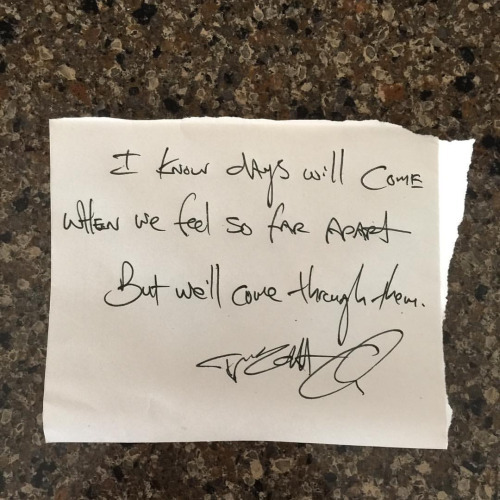 I know days will come
when we feel so far apart
But we'll come through them.